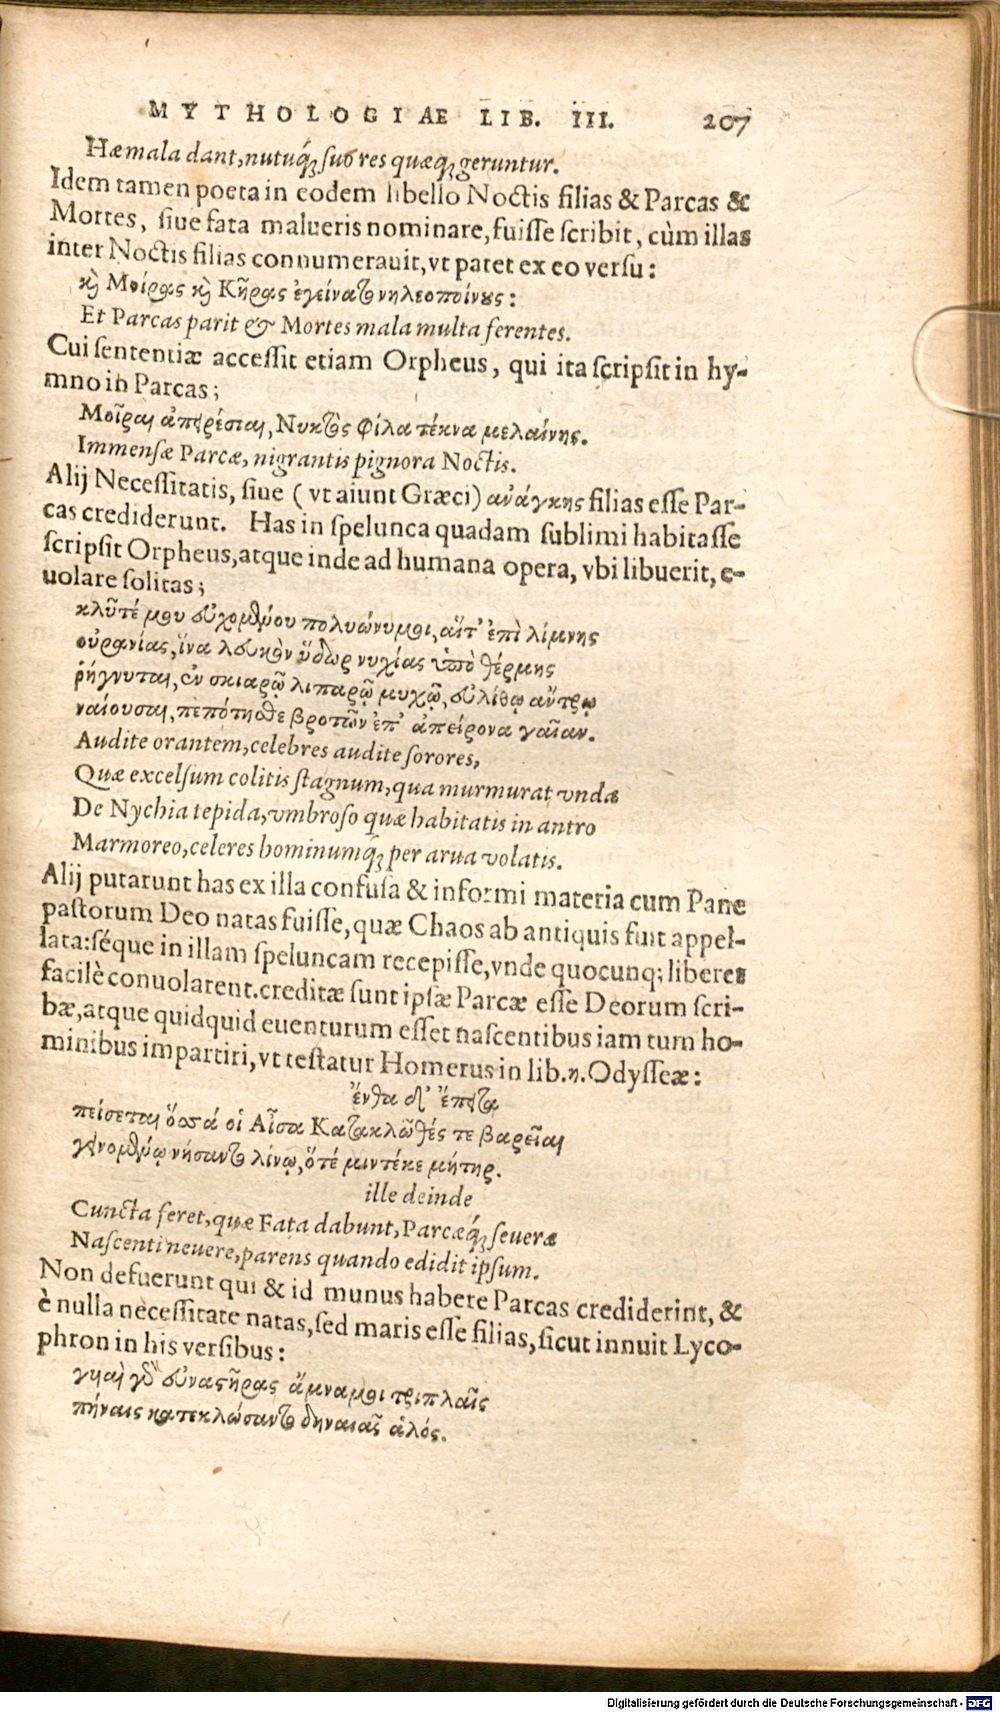 MYTHOLOGIAE LIB. III. 207
Hæ mala dant, nutuq́; suo res quæq; geruntur.
Idem tamen poeta in eodem libello Noctis filias & Parcas &
Mortes, siue fata malueris nominare, fuisse scribit, cùm illas
inter Noctis filias connumerauit, vt patet ex eo versu:
κ̀ Μοίρας κ̀ Κῆρας ἐγείνατο νηλεοποίνους:
Et Parcas parit & Mortes mala multa ferentes.
Cui sententiæ accessit etiam Orpheus, qui ita scripsit in hy-
mno in Parcas;
Μοῖραι ἀπειρέσιαι, Νυκτὸς φίλα τέκνα μελαίνης.
Immensæ Parcæ, nigrantis pignora Noctis.
Alij Necessitatis, siue ( vt aiunt Græci) ανάγκης filias esse Par-
cas crediderunt. Has in spelunca quadam sublimi habitasse
scripsit Orpheus, atque inde ad humana opera, vbi libuerit, e-
uolare solitas;
κλῦτέ μου εὐχομθύου πολυώνυμοι, αἵτ' ἐπὶ λίμνης
οὐρανίας, ἵνα λευκὸν ὕδωρ νυχίας ὑπὸ θέρμης
ῥήγνυται, ἐν σκιαρῷ λιπαρῷ μυχῷ, εὐλίθῳ αὔτρῳ
ναίουσαι, πεπότησθε βροτῶν ἐπ' ἀπείρονα γαῖαν.
Audite orantem, celebres audite sorores,
Quæ excelsum colitis stagnum, qua murmurat vndæ
De Nychia tepida, vmbroso quæ habitatis in antro
Marmoreo, celeres hominumq́; per arua volatis.
Alij putarunt has ex illa confusa & informi materia cum Pane
pastorum Deo natas fuisse, quæ Chaos ab antiquis fuit appel-
lata: séque in illam speluncam recepisse, vnde quocunq; liberes
facilè conuolarent. creditæ sunt ipsæ Parcæ esse Deorum scri-
bæ, atque quidquid euenturum esset nascentibus iam tum ho-
minibus impartiri, vt testatur Homerus in lib. η. Odysseæ:
ἔνθα δ' ἔπειτα
πείσεται ὅσσά οἱ Αἶσα Κατακλῶθές τε βαρεῖαι
γεινομθύῳ νήσαντο λίνῳ, ὅτέ μιν τέκε μήτηρ.
ille deinde
Cuncta feret, quæ Fata dabunt, Parcæq́; seueræ
Nascenti neuere, parens quando edidit ipsum.
Non defuerunt qui & id munus habere Parcas crediderint, &
è nulla necessitate natas, sed maris esse filias, sicut innuit Lyco-
phron in his versibus:
γυιαὶ γὸ εὐναστῆρας ἄμναμοι τριπλαῖς
πήναις κατεκλώσαντο δηναιαῖς ἁλός.
Digitalisierung gefördert durch die Deutsche Forschungsgemeinschaft - DFG